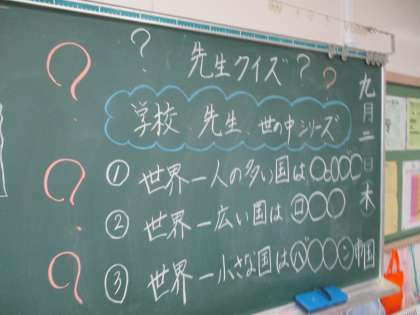 ? ? 先生クイズ ? ?
学校 先生 世の中シリーズ
? ① 世界一人の多い国は○○○○○
② 世界一広い国は㋺○○
? ③ 世界一小さな国はバ○○○ン
九月二日木
中国